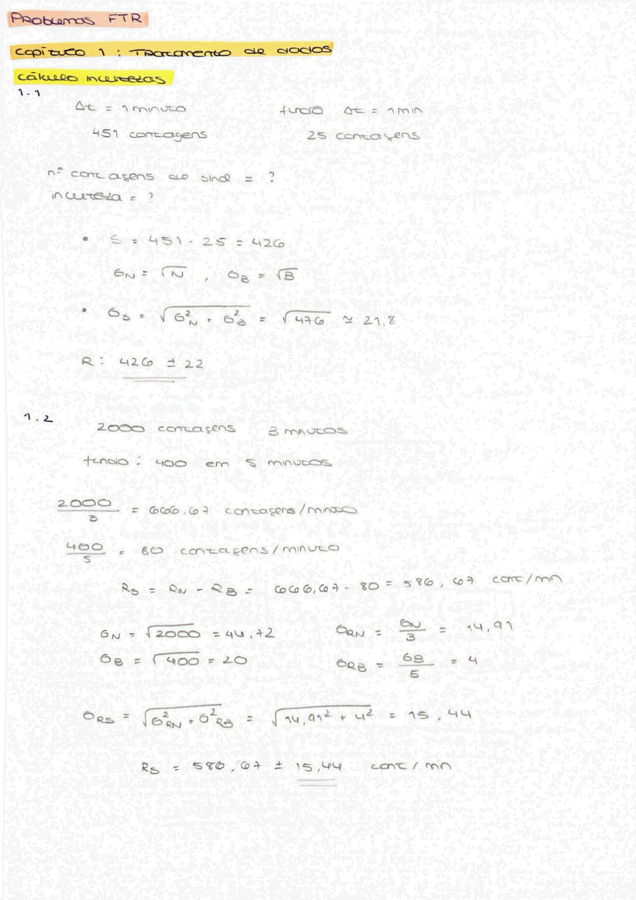 Problemas FTR
Capítulo 1 : Tratamento de dados
Cálculo incertezas
1.1
Δt = 1 minuto fundo Δt = 1 min
451 contagens 25 contagens
nº contagens de sinal = ?
incerteza = ?
• S = 451 - 25 = 426
σN = √N , σB = √B
• σS = √(σ²N + σ²B) = √476 ≃ 21,8
R: 426 ± 22
1.2
2000 contagens 3 minutos
fundo : 400 em 5 minutos
2000/3 = 666,67 contagens/minuto
400/5 = 80 contagens/minuto
RS = RN - RB = 666,67 - 80 = 586,67 cont/min
σN = √2000 = 44,72 σRN = σN/3 = 14,91
σB = √400 = 20 σRB = σB/5 = 4
σRS = √(σ²RN + σ²RB) = √(14,91² + 4²) = 15,44
RS = 586,67 ± 15,44 cont/min